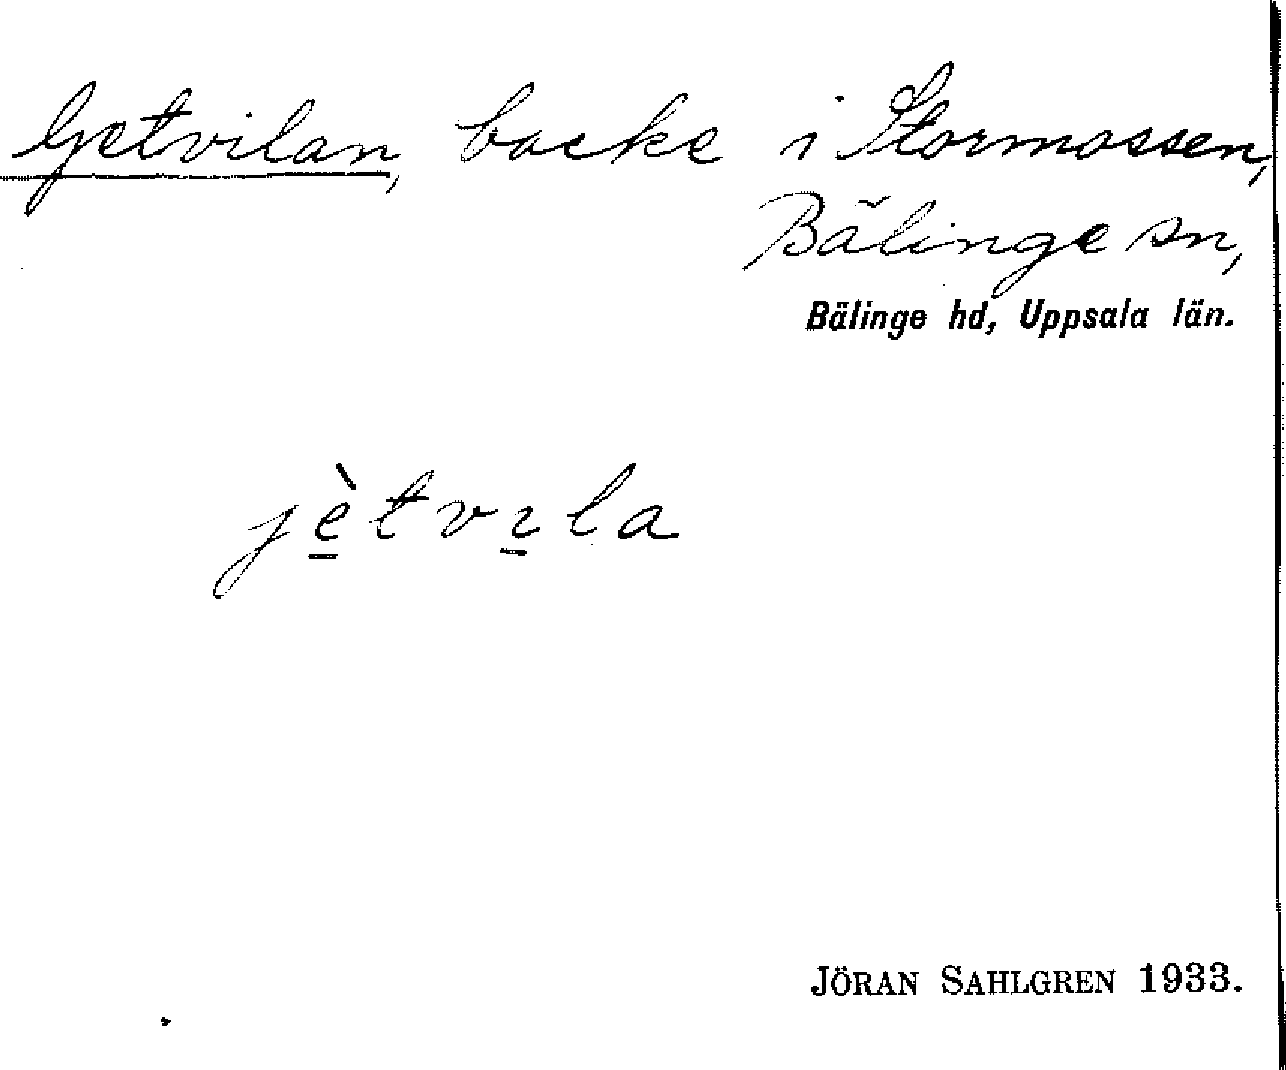 Getvilan, backe i Stormossen,
Bälinge sn,
Bälinge hd, Uppsala län.
jè̱tvı̱la
JÖRAN SAHLGREN 1933.